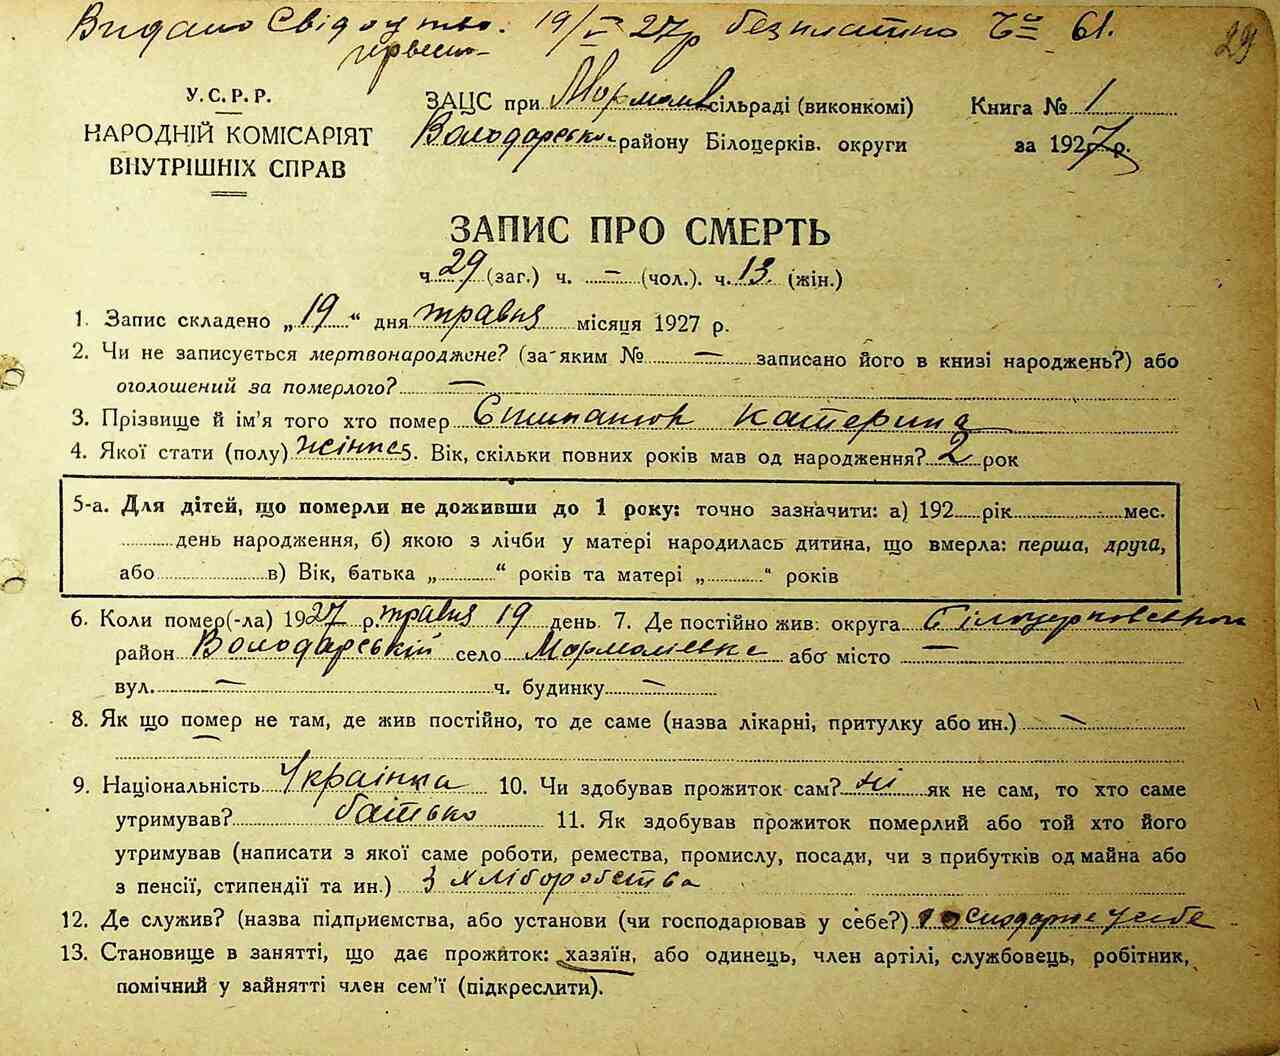 Видано Свідоцтво. 19/V 27р безплатно Ч 61.
29
У.С.Р.Р.
НАРОДНІЙ КОМІСАРІЯТ
ВНУТРІШНІХ СПРАВ
ЗАЦС при сільраді (виконкомі) Книга № 1
Володарськ району Білоцерків. округи за 1927 р.
ЗАПИС ПРО СМЕРТЬ
ч. 29 (заг.) ч. — (чол.). ч. 13 (жін.)
1. Запис складено „19“ дня травня місяця 1927 р.
2. Чи не записується мертвонароджене? (за яким № — записано його в книзі народжень?) або
оголошений за померлого? —
3. Прізвище й ім'я того хто помер Катерина
4. Якої стати (полу) жіноч 5. Вік, скільки повних років мав од народження? 2 рок
5-а. Для дітей, що померли не доживши до 1 року: точно зазначити: а) 192 рік мес.
день народження, б) якою з лічби у матері народилась дитина, що вмерла: перша, друга,
або в) Вік, батька „ “ років та матері „ “ років
6. Коли помер(-ла) 1927 р. травня 19 день 7. Де постійно жив: округа Білоцерковській
район Володарській село або місто —
вул. — ч. будинку —
8. Як що помер не там, де жив постійно, то де саме (назва лікарні, притулку або ин.) —
9. Національність Українка 10. Чи здобував прожиток сам? ні як не сам, то хто саме
утримував? батько 11. Як здобував прожиток померлий або той хто його
утримував (написати з якої саме роботи, ремества, промислу, посади, чи з прибутків од майна або
з пенсії, стипендії та ин.) З хліборобства
12. Де служив? (назва підприємства, або установи (чи господарював у себе?) у себе
13. Становище в занятті, що дає прожиток: хазяїн, або одинець, член артілі, службовець, робітник,
помічний у зайнятті член сем'ї (підкреслити).